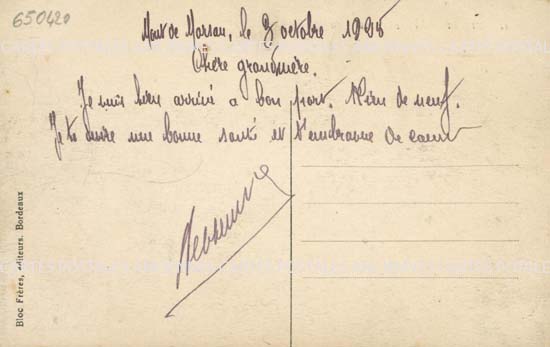 650420
Mont de Marsan, le 3 octobre
Chère grandmère.
Je suis bien arrivé a bon port. Rien de neuf.
Je te désire une bonne santé et t'embrasse de cœur
Bloc Frères, éditeurs. Bordeaux